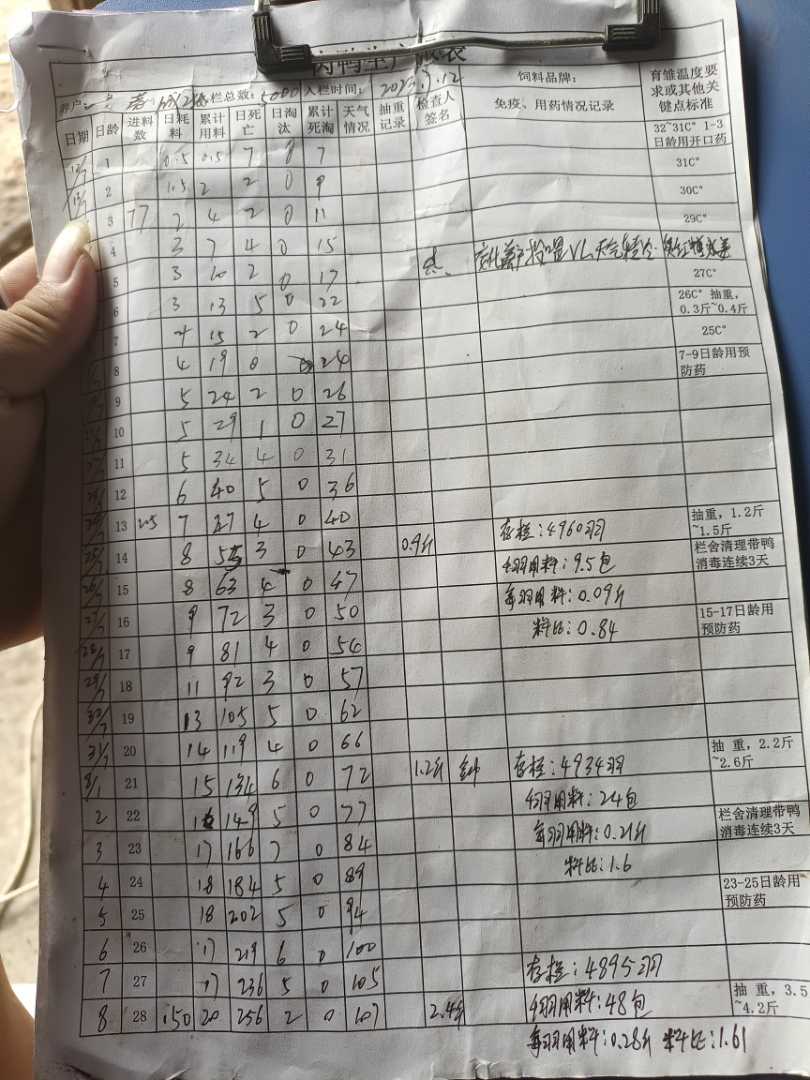 肉鸭生产报表
养户: 栏总数:5000 入栏时间:2023.7.12 饲料品牌: 育雏温度要求或其他关键点标准
日期 日龄 进料数 日耗料 累计用料 日死亡 日淘汰 累计死淘 天气情况 抽重记录 检查人签名 免疫、用药情况记录
12/7 1 0.5 0.5 7 0 7 32~31C° 1-3日龄用开口药
13/7 2 1.5 2 2 0 9 31C°
3 77 2 4 2 0 11 30C°
4 3 7 4 0 15 29C°
5 3 10 2 0 17 27C°
6 3 13 5 0 22 26C° 抽重,0.3斤~0.4斤
7 2 15 2 0 24 25C°
8 4 19 0 0 24 7-9日龄用预防药
9 5 24 2 0 26
10 5 29 1 0 27
11 5 34 4 0 31
12 6 40 5 0 36
13 205 7 47 4 0 40 存栏:4960羽 抽重,1.2斤~1.5斤
25/7 14 8 55 3 0 43 0.9斤 4羽用料:9.5包 栏舍清理带鸭消毒连续3天
26/7 15 8 63 4 0 47 每羽用料:0.09斤
27/7 16 9 72 3 0 50 料比:0.84 15-17日龄用预防药
28/7 17 9 81 4 0 54
29/7 18 11 92 3 0 57
30/7 19 13 105 5 0 62
31/7 20 14 119 4 0 66 抽 重,2.2斤~2.6斤
8/1 21 15 134 6 0 72 1.2斤 存栏:4934羽
2 22 149 5 0 77 4羽用料:24包 栏舍清理带鸭消毒连续3天
3 23 17 166 7 0 84 每羽用料:0.21斤
4 24 18 184 5 0 89 料比:1.6 23-25日龄用预防药
5 25 18 202 5 0 94
6 26 17 219 6 0 100
7 27 17 236 5 0 105 存栏:4895羽
8 28 150 20 256 2 0 107 2.4斤 4羽用料:48包 抽 重,3.5~4.2斤
每羽用料:0.28斤 料比:1.61